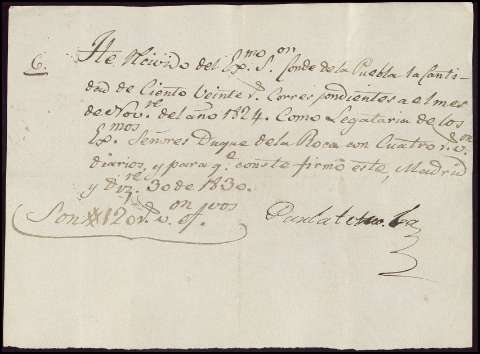 6. He Recivido del Exmo Sor Conde de la Puebla la Canti-
dad de Ciento Veinte rs. Correspondientes a el mes
de Nove. del año 1824. Como Legataria de los
Exmos Señores Duque de la Roca con Cuatro rs. von
diarios, y para qe conste firmo este, Madrid
y Dize. 30 de 1830.
Son # 120 rs. von
Paula